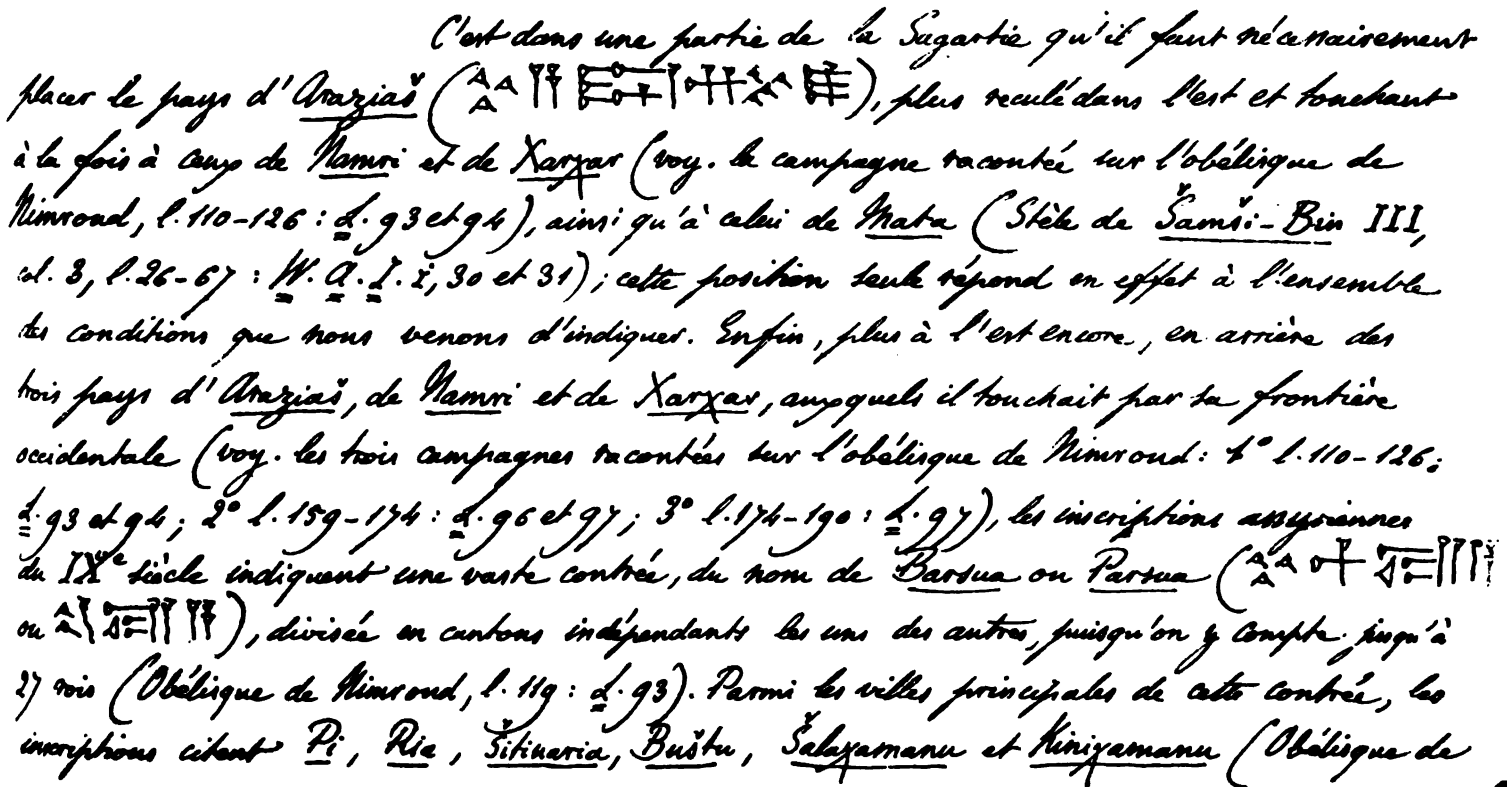 C'est dans une partie de la Sagartie qu'il faut nécessairement
placer le pays d'Araziaš (), plus reculé dans l'est et touchant
à la fois à ceux de Namri et de Xarχar (voy. la campagne racontée sur l'obélisque de
Nimroud, l. 110-126 : L. 93 et 94), ainsi qu'à celui de Mata (Stèle de Šamši-Bin III,
col. 3, l. 26-67 : W. A. I. I, 30 et 31); cette position seule répond en effet à l'ensemble
des conditions que nous venons d'indiquer. Enfin, plus à l'est encore, en arrière des
trois pays d'Araziaš, de Namri et de Xarχar, auxquels il touchait par sa frontière
occidentale (voy. les trois campagnes racontées sur l'obélisque de Nimroud: 1° l. 110-126:
L. 93 et 94; 2° l. 159-174: L. 96 et 97; 3° l. 174-190: L. 97), les inscriptions assyriennes
du IXe siècle indiquent une vaste contrée, du nom de Barsua ou Parsua (
ou ), divisée en cantons indépendants les uns des autres, puisqu'on y compte jusqu'à
27 rois (Obélisque de Nimroud, l. 119: L. 93). Parmi les villes principales de cette contrée, les
inscriptions citent Pi, Ria, Šitiuaria, Buštu, Šalaχamanu et Kiniχamanu (Obélisque de